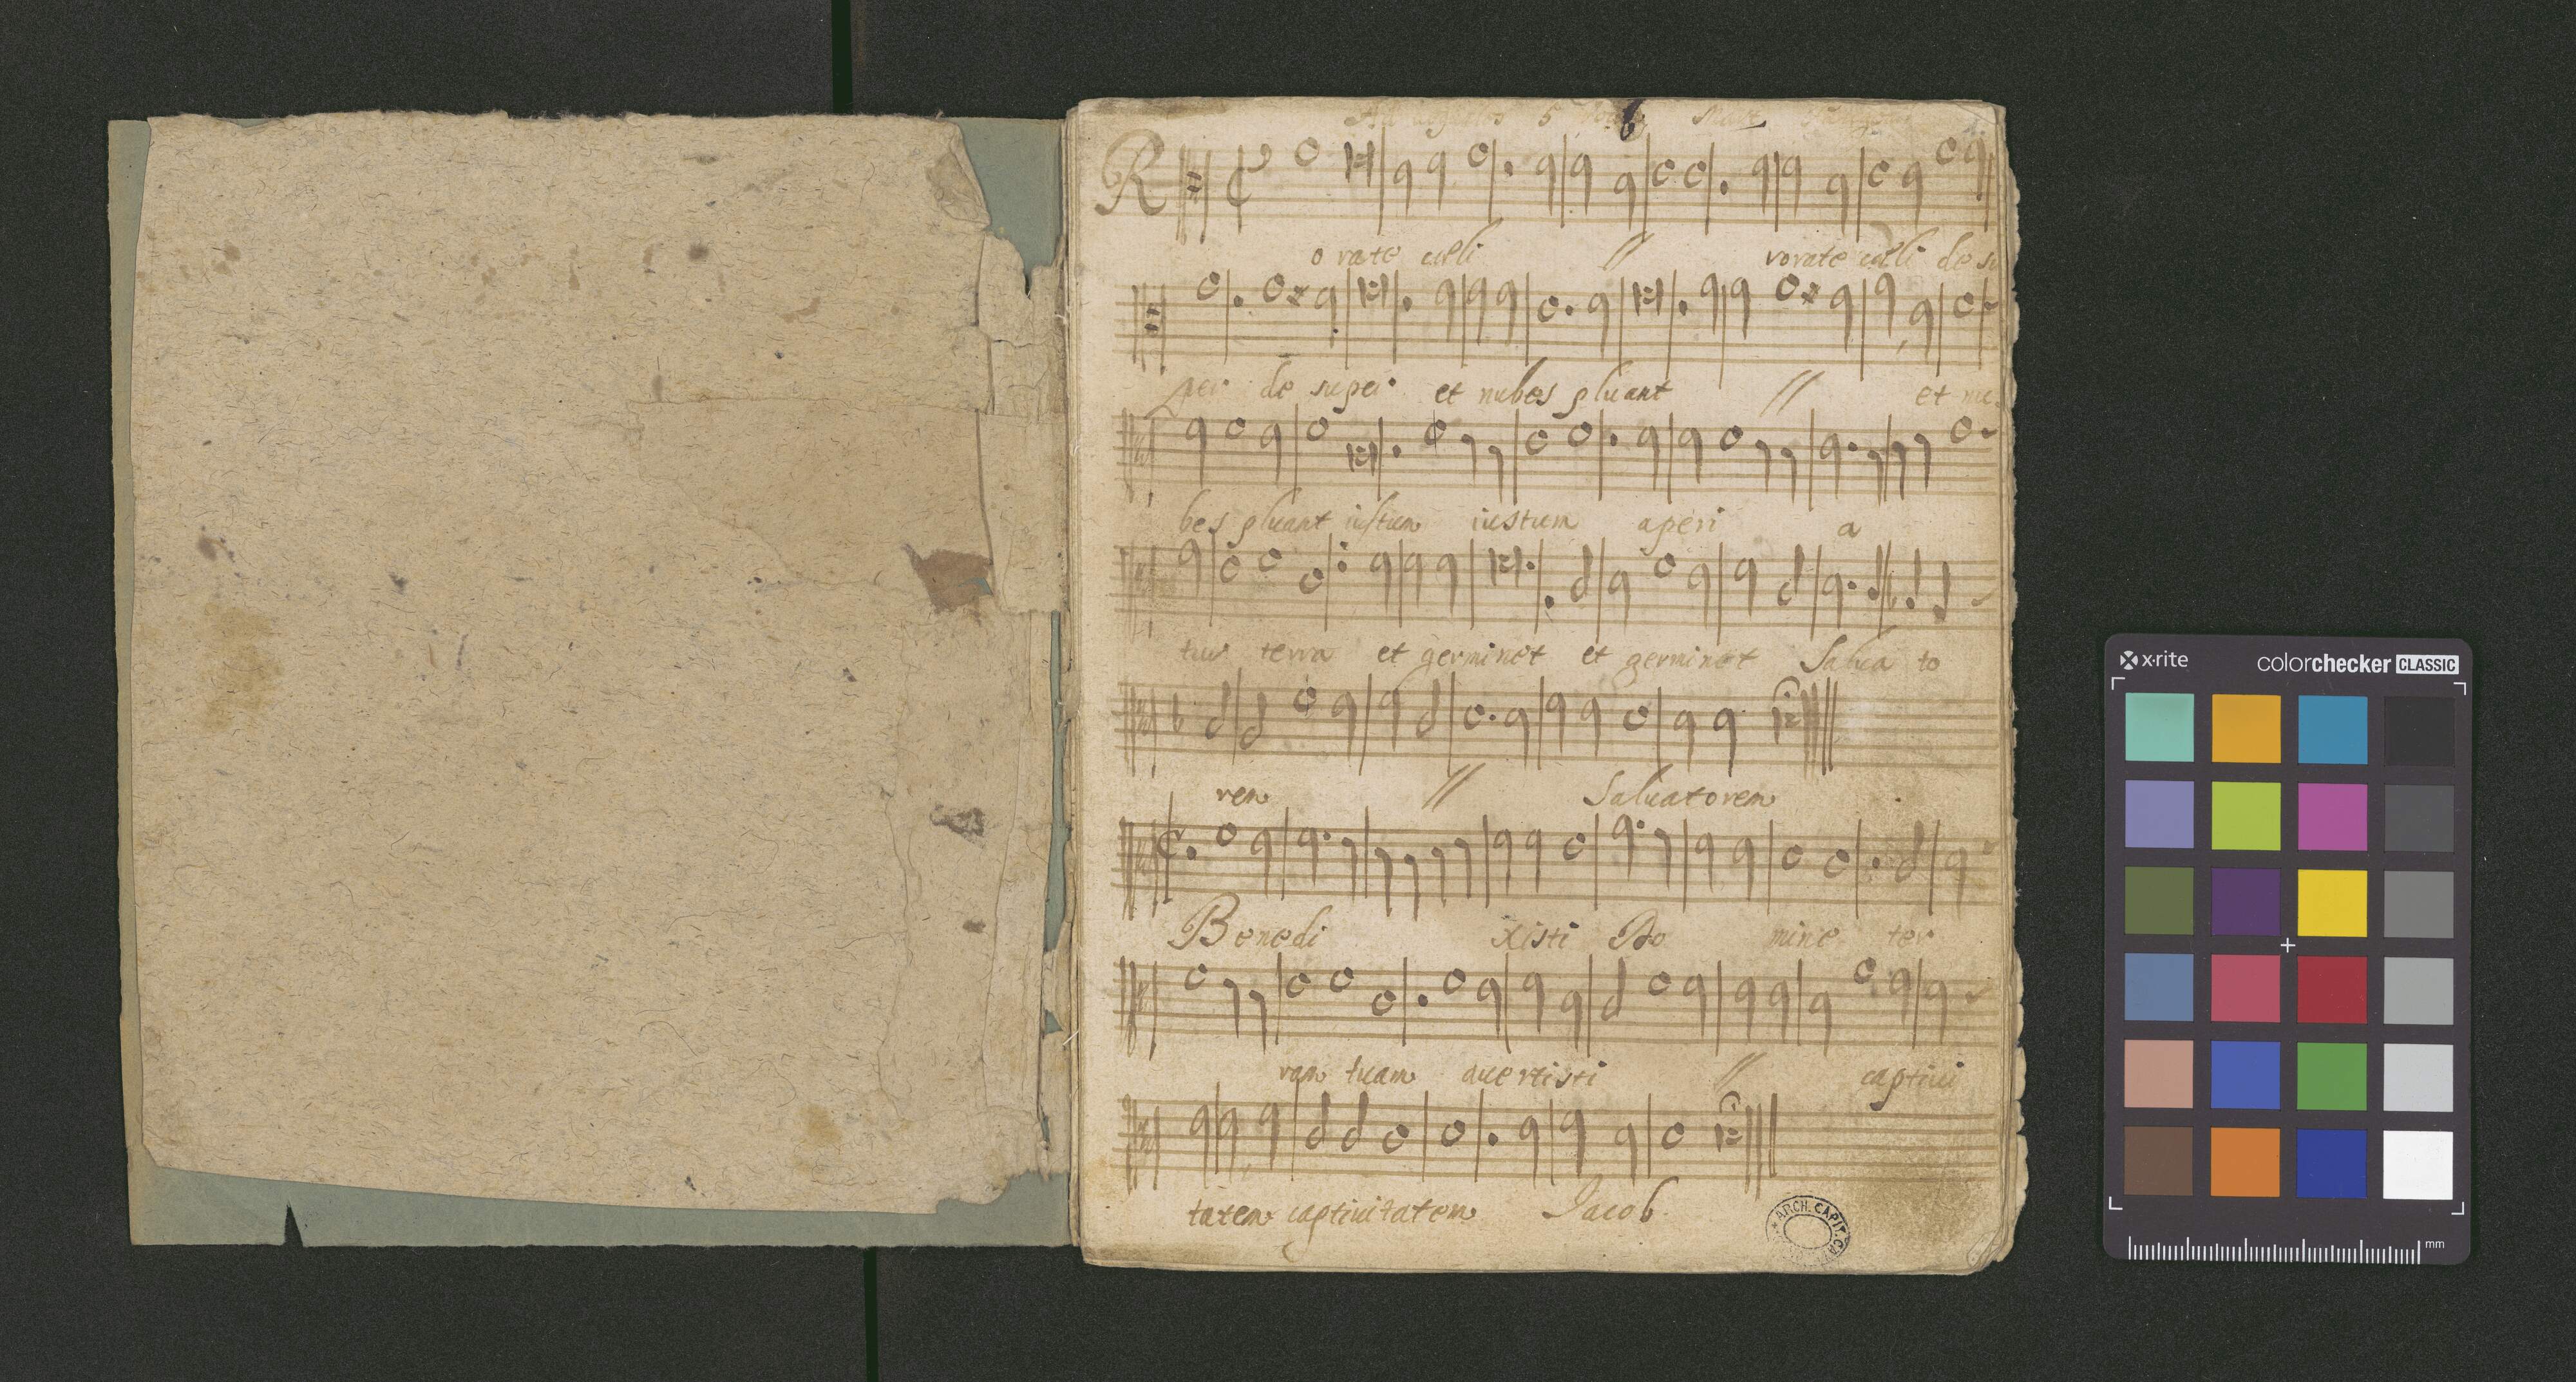 5
R
orate cæli // vorate cæli de su
per de super et nubes pluant // et nu
bes pluant iustum iustum aperi a
tur terra et germinet et germinet Salua to
rem // Saluatorem
Benedi xisti Do mine ter
ram tuam auertisti // captiui
tatem captiuitatem Jacob
ARCH. CAPIT.
x·rite colorchecker CLASSIC
mm